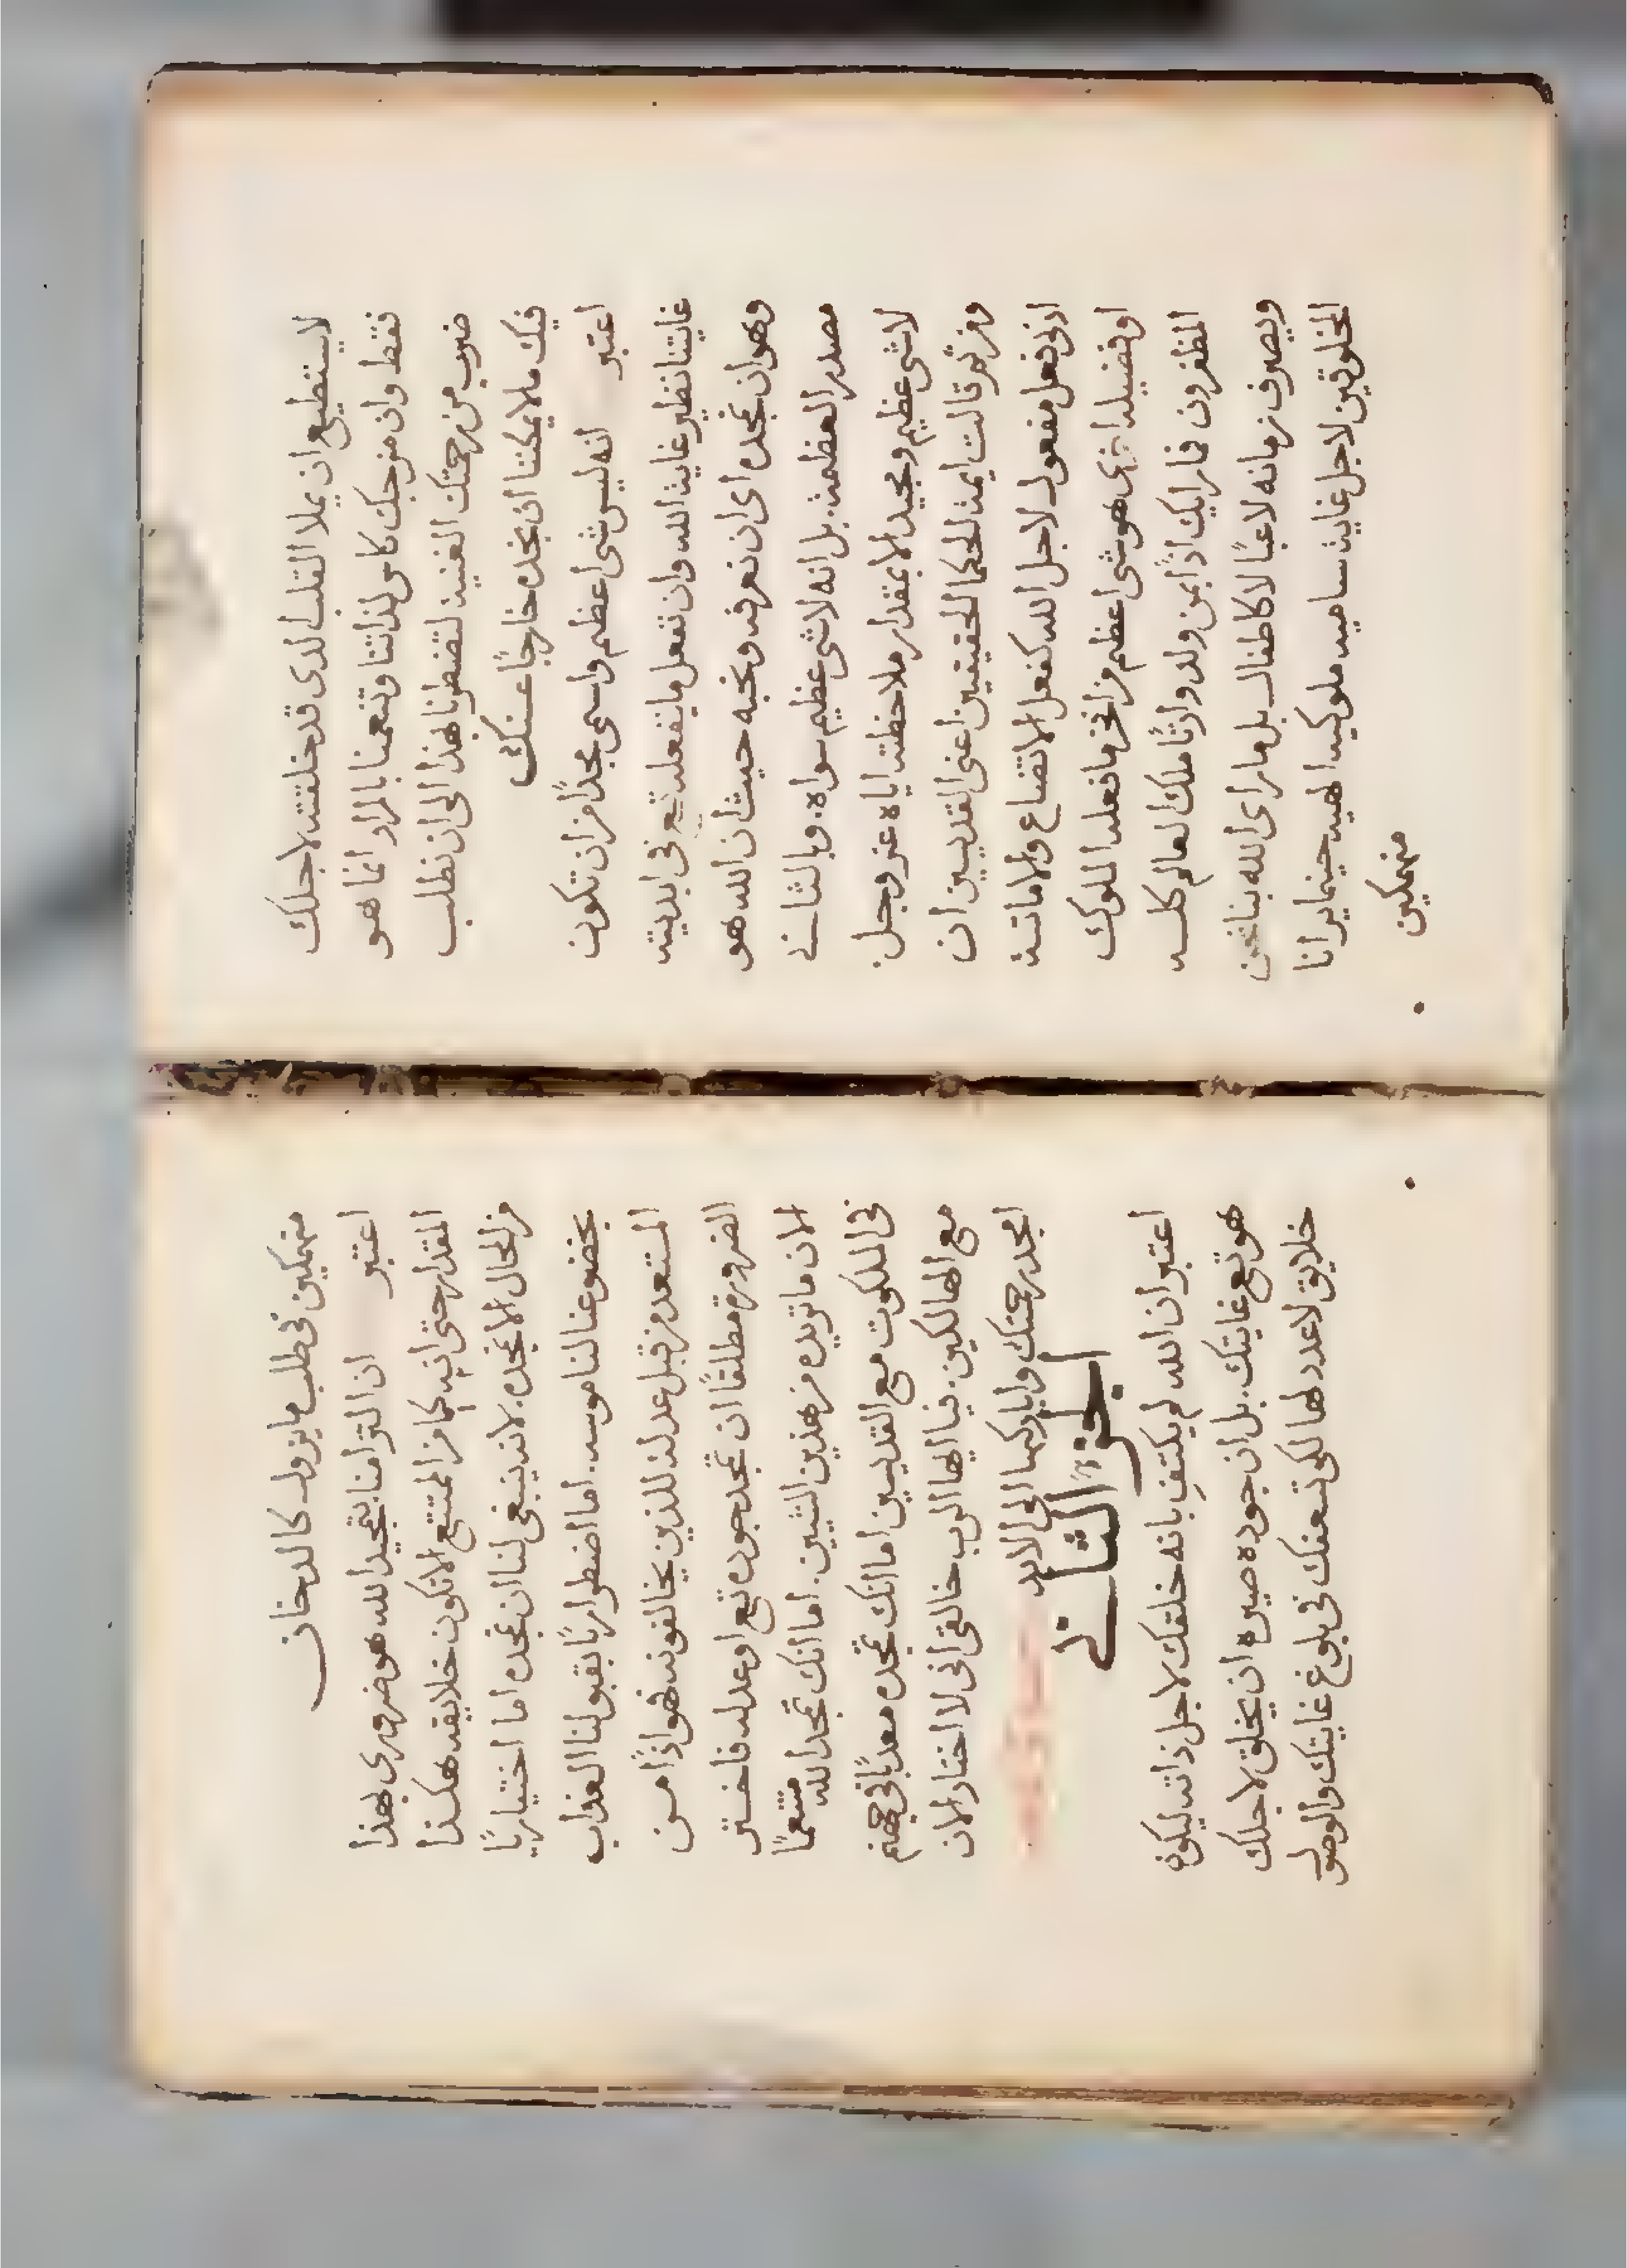 لا يستطيع ان يملا القلب الدى قد خلقته لاجلك
فقط وان مزجك كاس لذاتنا وتنعمنا بالمرار انما هو
ضرب من رحمتك الغنيه لتضطرنا بهذا الى ان نطلب
فيك ما لا يمكننا ان نجده خارجًا عنك
اعتبر انه ليس شى اعظم واسمى مجدًا من ان تكون
غايتنا نظير غاية الله وان نفعل ما يفعله تع فى ابديته
وهو ان نمجده اى ان نعرفه ونحبه حيث ان الله هو
مصدر العظمة. بل انه لا شى عظيم سواه. وبالتانى
لا شى عظيم ومجيد الا بمقدار ملاحظته اياه عز وجل.
ومن ثم قالت ايمة الحكما الحقيقيين اعنى القديسين ان
ادنى فعل مفعول لاجل الله كفعل الاتضاع والاماتة
او فضيلة اخرى هو شى اعظم من افخر ما فعله الملوك
المظفرون فما رايك اذًا بمن ولد وارثًا ملك العالم كله
ويصرف زمانه لاعبًا لا كاطفال بل ما راى الله بنا نحن
المخلوقين لاجل غاية ساميه ملوكيه الهيه حينما يرانا
منهمكين
منهمكين فى طلب ما يزول كالدخان
اعتبر ان التزامنا بتمجيد الله هو ضرورى بهذا
المقدار حتى انه كما من الممتنع الا تكون خلايقه هكذا
من المحال الا نمجده. لانه ينبغى لنا ان نمجده اما اختياريًا
بخضوعنا لناموسه. اما اضطراريًا بقبولنا العذاب
المستعد من قبل عدله للذين يخالفونه فهو اذًا من
الضروره مطلقًا ان تمجد جوده تع او عدله فاختر
الان ما تريده من هذين الشيين. اما انك تمجد الله متنعمًا
فى الملكوت مع القديسين اما انك تمجده معذبًا فى جهنم
مع الهالكين. فيا ايها الرب خالقى انى لا اختار الان
امجد رحمتك واباركها الى الابد
الجزء الثانى
اعتبر ان الله لم يكتفِ بانه خلقك لاجل ذاته ليكون
هو تع غايتك. بل ان جوده صيره ان يخلق لاجلك
خلايق لا عدد لها لكى تسعفك فى بلوغ غايتك والوصول